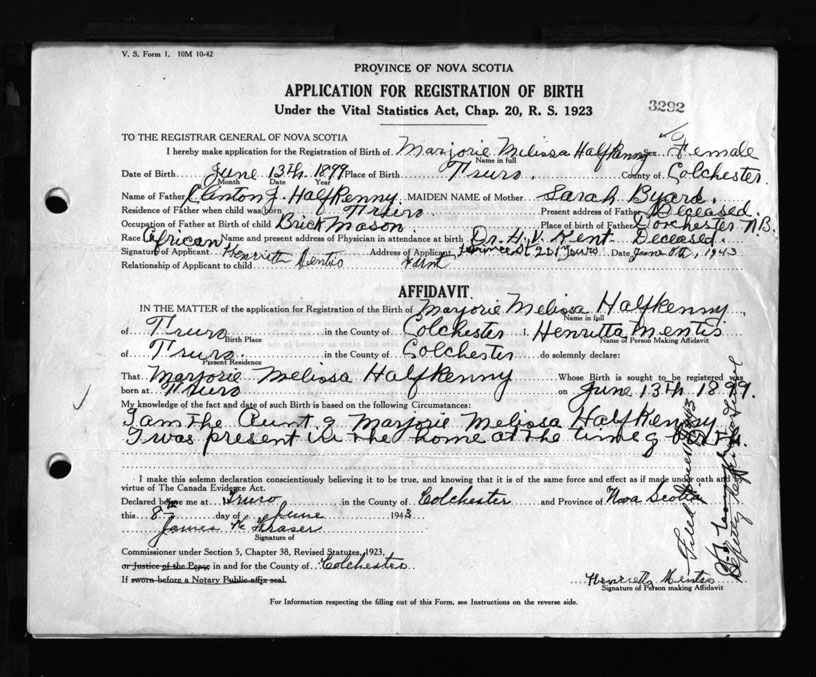 V. S. Form 1. 10M 10-42
PROVINCE OF NOVA SCOTIA
APPLICATION FOR REGISTRATION OF BIRTH
Under the Vital Statistics Act, Chap. 20, R. S. 1923
3292
TO THE REGISTRAR GENERAL OF NOVA SCOTIA
I hereby make application for the Registration of Birth of Marjorie Melissa Halfkenny Sex Female
Name in full
Date of Birth June 13th. 1899 Place of Birth Truro. County of Colchester.
Month Date Year
Name of Father Clanton J. Halfkenny. MAIDEN NAME of Mother Sarah Byard.
Residence of Father when child was born Truro Present address of Father Deceased.
Occupation of Father at Birth of child Brick Mason. Place of birth of Father Dorchester N.B.
Race African Name and present address of Physician in attendance at birth Dr. H. V. Kent Deceased.
Signature of Applicant Henrietta Mentis Address of Applicant St Truro Date June 8th, 1943
Relationship of Applicant to child Aunt
AFFIDAVIT
IN THE MATTER of the application for Registration of the Birth of Marjorie Melissa Halfkenny
Name in full
of Truro in the County of Colchester I, Henrietta Mentis
Birth Place Name of Person Making Affidavit
of Truro. in the County of Colchester do solemnly declare:
Present Residence
That Marjorie Melissa Halfkenny Whose Birth is sought to be registered was
born at Truro on June 13th 1899.
My knowledge of the fact and date of such Birth is based on the following Circumstances:
I am the Aunt of Marjorie Melissa Halfkenny
I was present in the home at the time of birth.
I make this solemn declaration conscientiously believing it to be true, and knowing that it is of the same force and effect as if made under oath and
virtue of The Canada Evidence Act.
Declared before me at Truro in the County of Colchester and Province of Nova Scotia
this 8th day of June 1943
James K Fraser
Signature of
Commissioner under Section 5, Chapter 38, Revised Statutes, 1923,
or Justice of the Peace in and for the County of Colchester
If sworn before a Notary Public affix seal.
Henrietta Mentis
Signature of Person making Affidavit
For Information respecting the filling out of this Form, see Instructions on the reverse side.
Filed June 1943
Deputy Registrar General